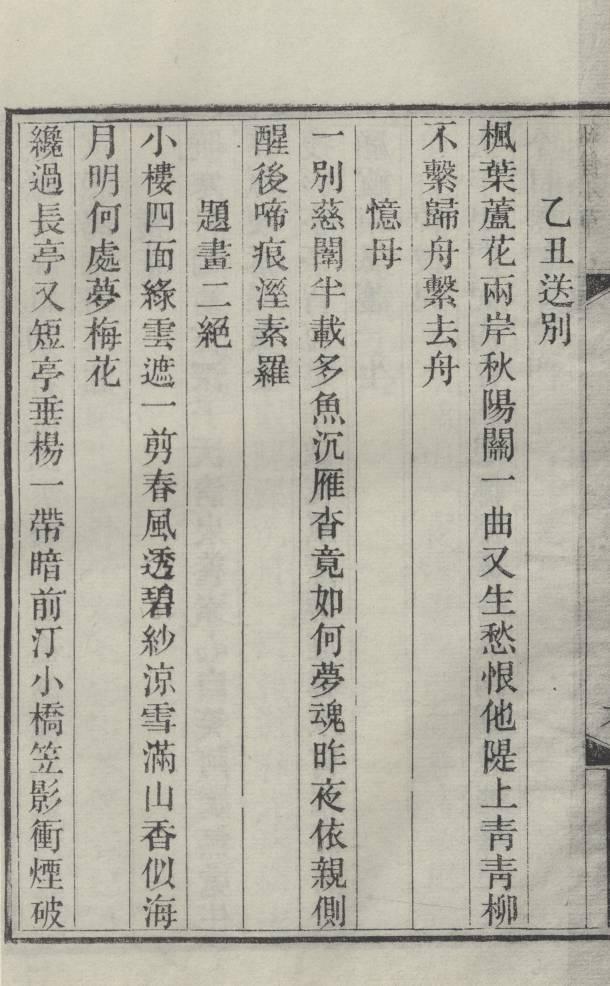 乙丑送別
楓葉蘆花兩岸秋陽關一曲又生愁恨他隄上靑靑柳
不繫歸舟繫去舟
憶母
一別慈闈半載多魚沉雁杳竟如何夢魂昨夜依親側
醒後啼痕溼素羅
題畫二絕
小樓四面綠雲遮一剪春風透碧紗涼雪滿山香似海
月明何處夢梅花
纔過長亭又短亭垂楊一帶暗前汀小橋笠影衝煙破